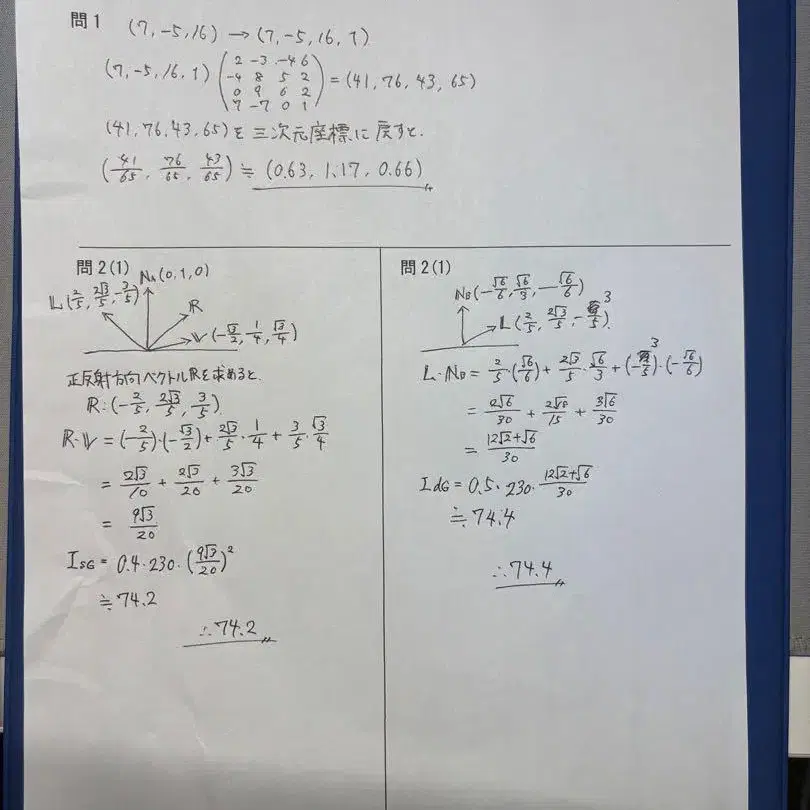 問1
(7, -5, 16) → (7, -5, 16, 1)
(7, -5, 16, 1) (2 -3 -4 6
-4 8 5 2
0 9 6 2
7 -7 0 1) = (41, 76, 43, 65)
(41, 76, 43, 65) を三次元座標に戻すと.
(41/65, 76/65, 43/65) ≒ (0.63, 1.17, 0.66)
問2(1)
N_A (0, 1, 0)
L (2/5, 2√3/5, -3/5)
R
V (-√3/2, 1/4, √3/4)
正反射方向ベクトルRを求めると.
R: (-2/5, 2√3/5, 3/5).
R・V = (-2/5)・(-√3/2) + 2√3/5・1/4 + 3/5・√3/4
= 2√3/10 + 2√3/20 + 3√3/20
= 9√3/20
I_SG = 0.4・230・(9√3/20)²
≒ 74.2
∴ 74.2
問2(1)
N_B (-√6/6, √6/3, -√6/6)
L (2/5, 2√3/5, -3/5).
L・N_B = 2/5・(√6/6) + 2√3/5・√6/3 + (-3/5)・(-√6/6)
= 2√6/30 + 2√18/15 + 3√6/30
= 12√2+√6/30
I_dG = 0.5・230・12√2+√6/30
≒ 74.4
∴ 74.4